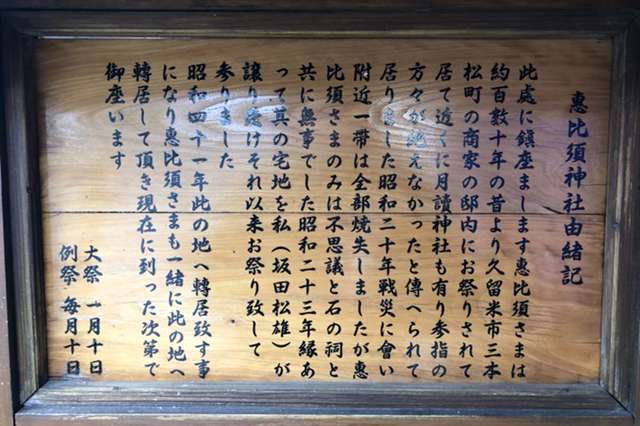 惠比須神社由緒記
此處に鎮座まします惠比須さまは
約百数十年の昔より久留米市三本
松町の商家の邸内にお祭りされて
居て近くに月讀神社も有り参指の
方々が絶えなかったと傳へられて
居りました昭和二十年戦災に會い
附近一帯は全部焼失しましたが惠
比須さまのみは不思議と石の祠と
共に無事でした昭和二十三年縁あ
って其の宅地を私(坂田松雄)が
譲り受けそれ以来お祭り致して
参りました
昭和四十一年此の地へ轉居致す事
になり惠比須さまも一緒に此の地へ
轉居して頂き現在に到った次第で
御座います
大祭 一月十日
例祭 毎月十日